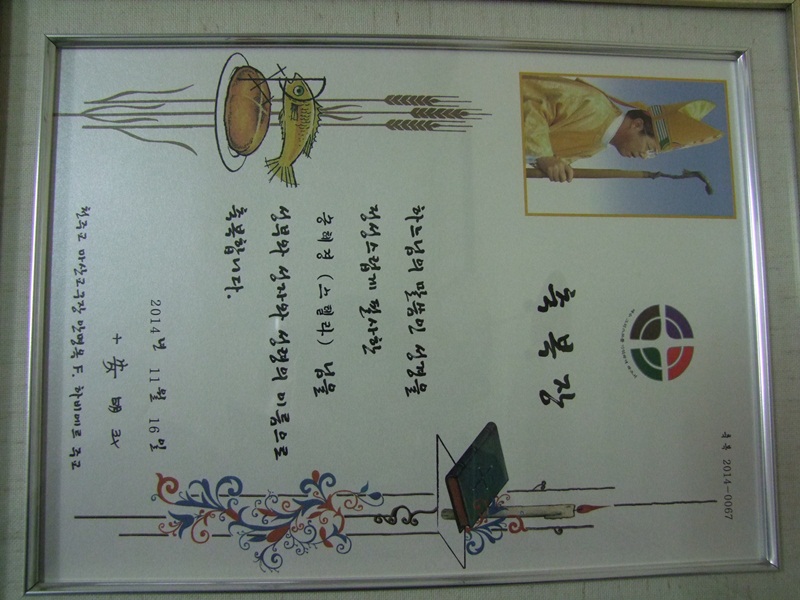 축복 2014-0067
축 복 장
하느님의 말씀인 성경을
정성스럽게 필사한
(스텔라) 님을
성부와 성자와 성령의 이름으로
축복합니다.
2014년 11월 16일
천주교 마산교구장 안명옥 F. 하비에르 주교